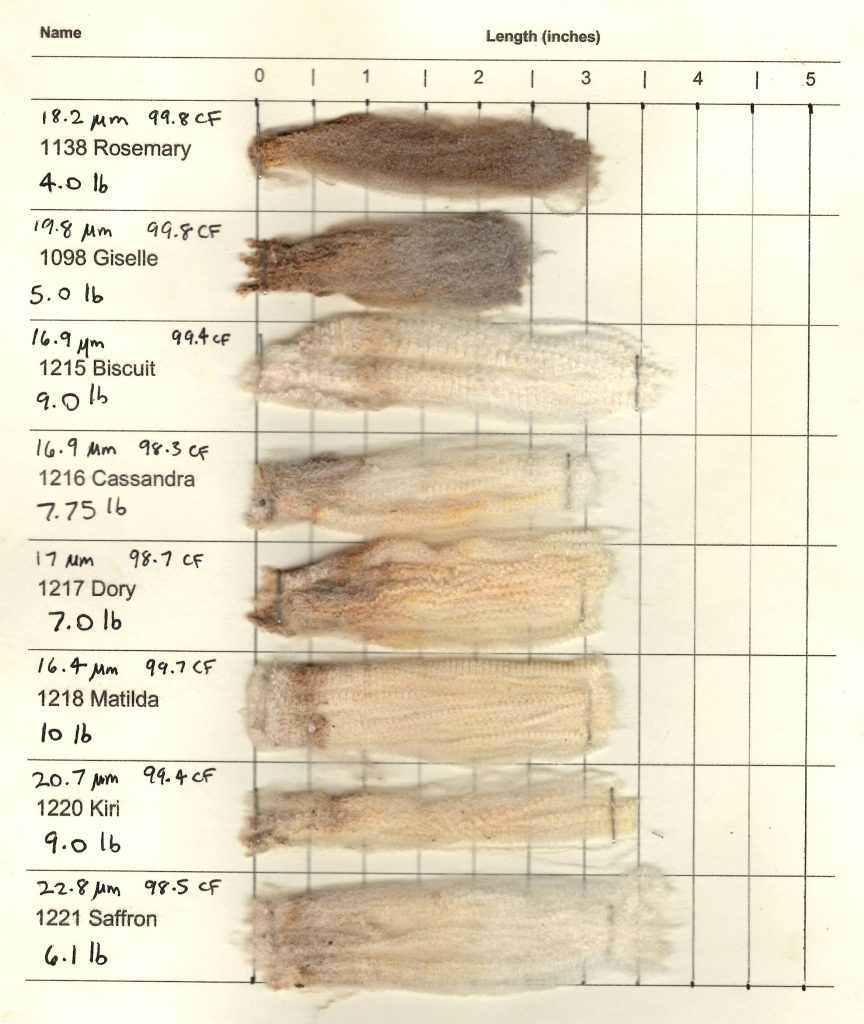 Name Length (inches)
0 | 1 | 2 | 3 | 4 | 5
18.2 µm 99.8 CF
1138 Rosemary
4.0 lb
19.8 µm 99.8 CF
1098 Giselle
5.0 lb
16.9 µm 99.4 CF
1215 Biscuit
9.0 lb
16.9 µm 98.3 CF
1216 Cassandra
7.75 lb
17 µm 98.7 CF
1217 Dory
7.0 lb
16.4 µm 99.7 CF
1218 Matilda
10 lb
20.7 µm 99.4 CF
1220 Kiri
9.0 lb
22.8 µm 98.5 CF
1221 Saffron
6.1 lb